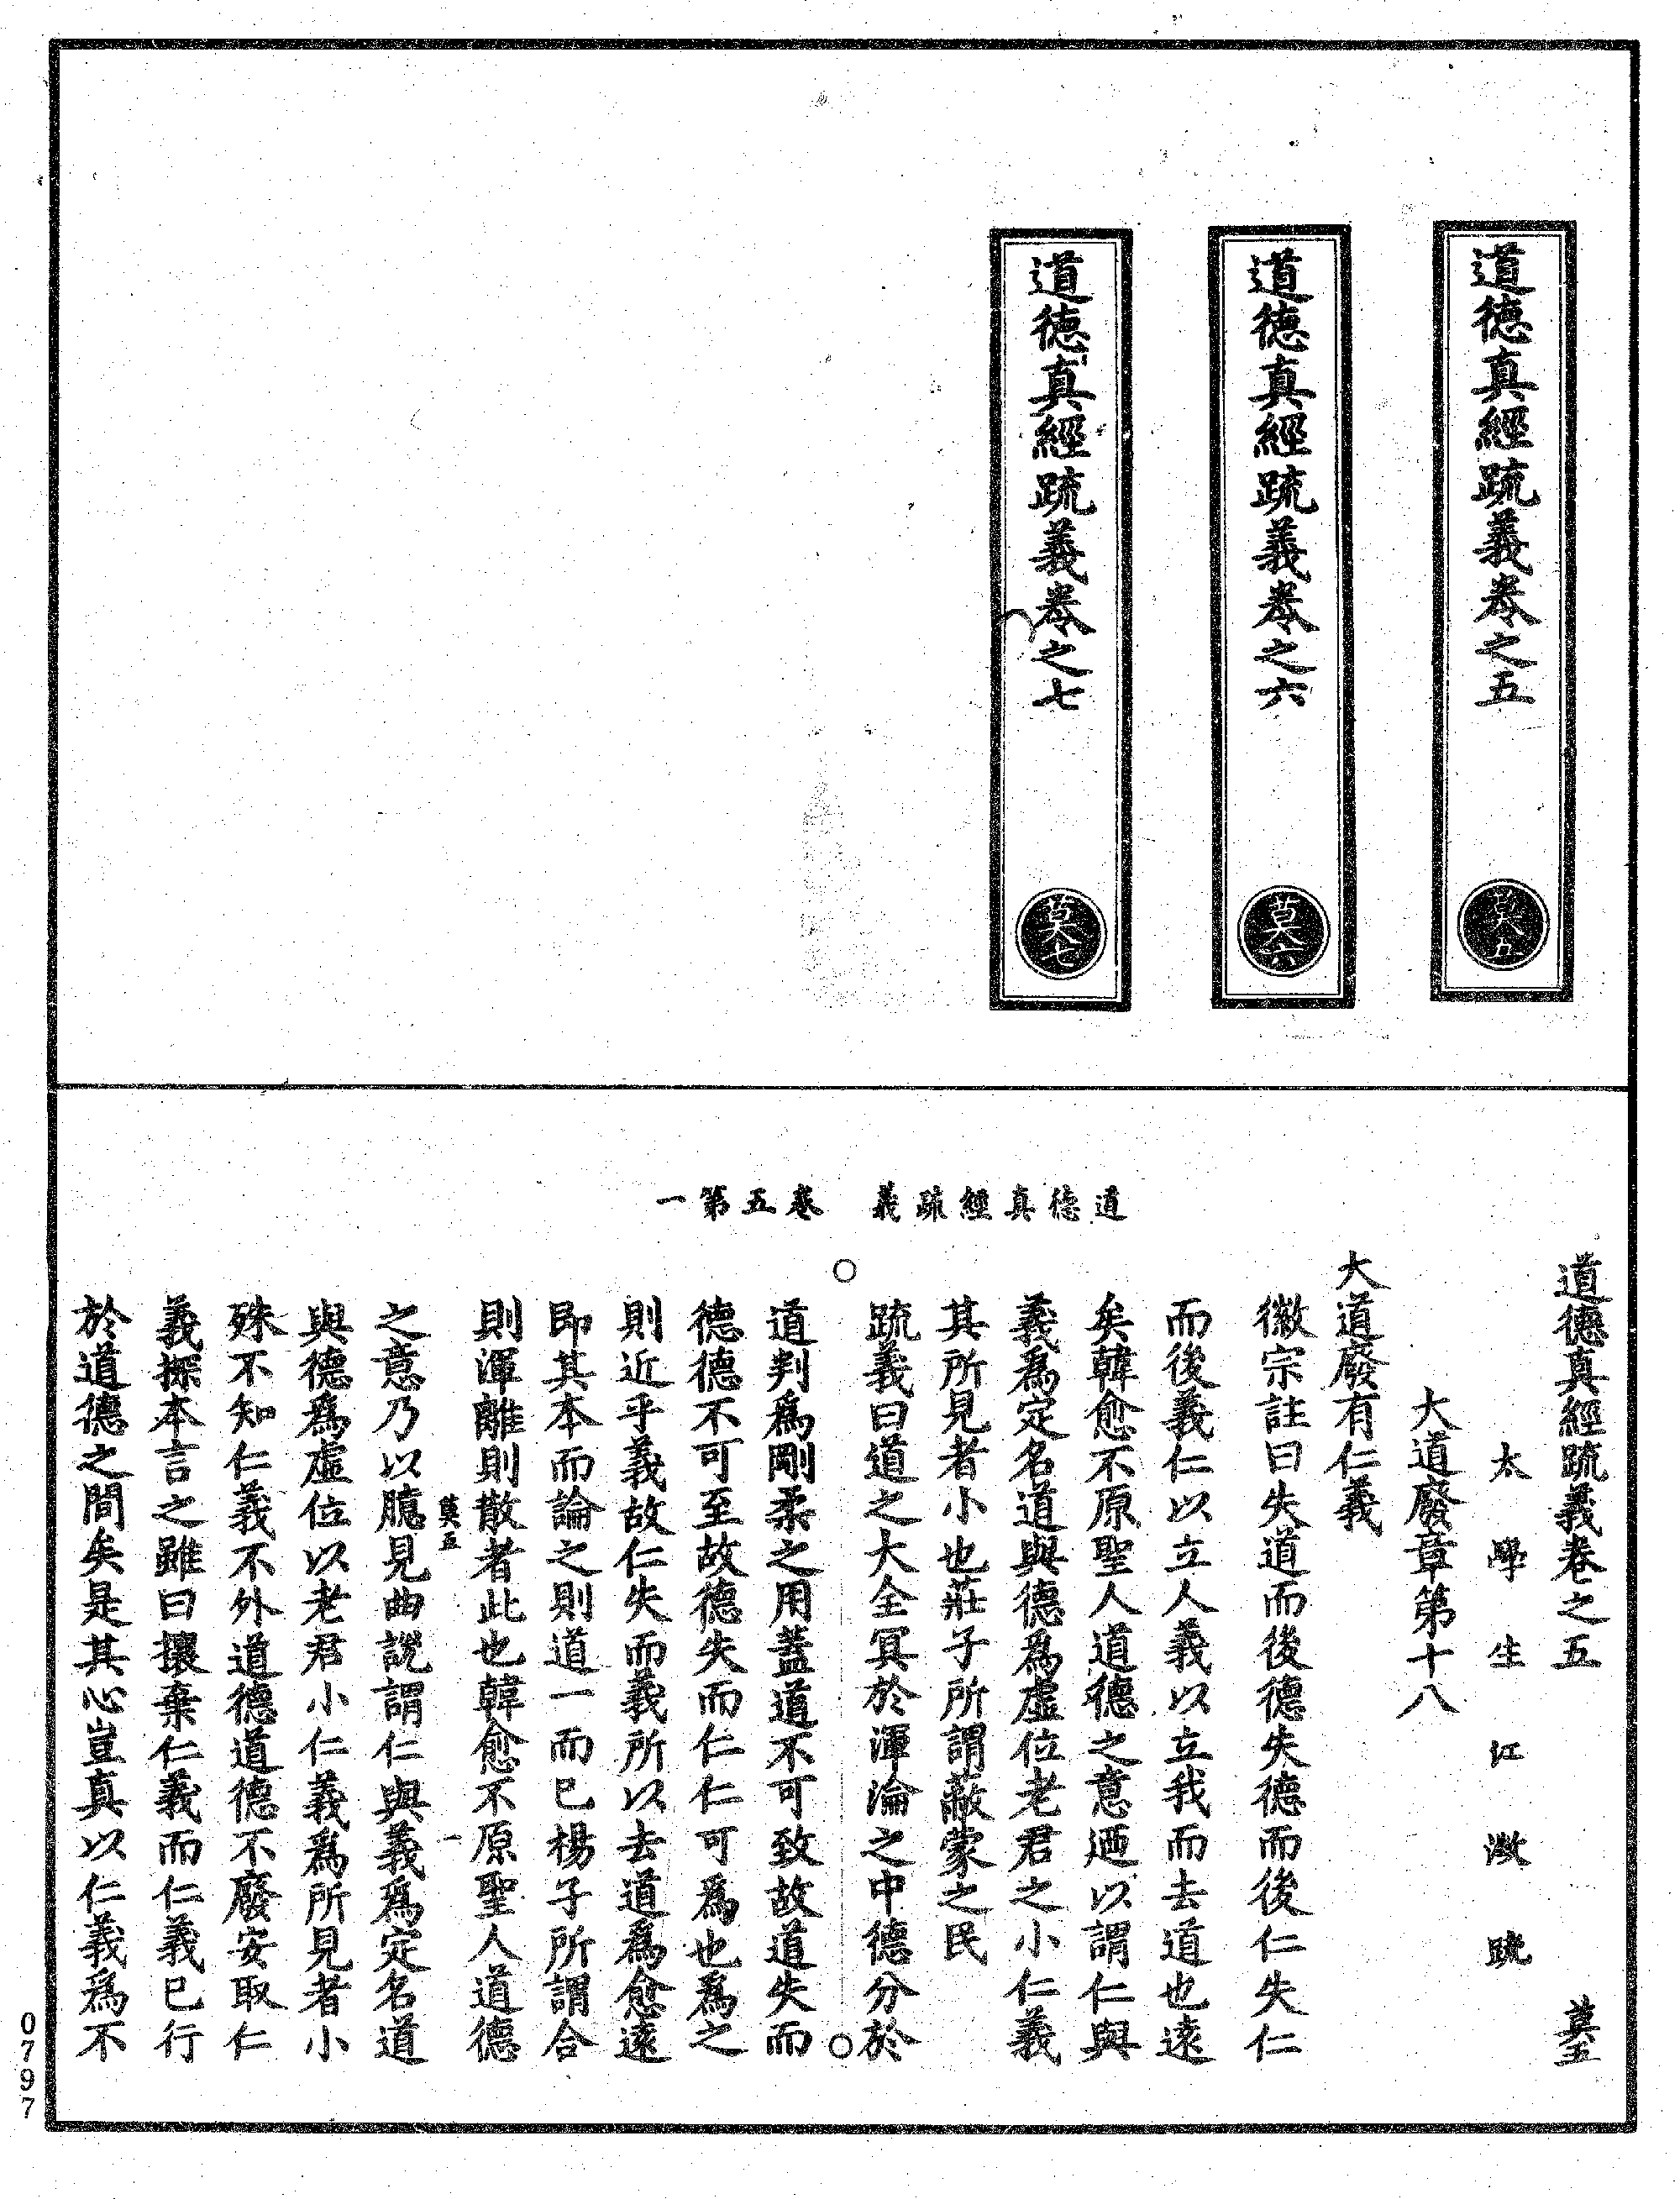 道德真經疏義卷之五
莫五
道德真經疏義卷之六
莫六
道德真經疏義卷之七
莫七
道德真經疏義　卷五第一
道德真經疏義卷之五　莫五
太學生江澂疏
大道廢章第十八
大道廢有仁義
徽宗註曰失道而後德失德而後仁失仁
而後義仁以立人義以立我而去道也遠
矣韓愈不原聖人道德之意迺以謂仁與
義為定名道與德為虛位老君之小仁義
其所見者小也莊子所謂蔽蒙之民
疏義曰道之大全冥於渾淪之中德分於
道判為剛柔之用蓋道不可致故道失而
德德不可至故德失而仁仁可為也為之
則近乎義故仁失而義所以去道為愈遠
即其本而論之則道一而已楊子所謂合
則渾離則散者此也韓愈不原聖人道德
莫五　一
之意乃以臆見曲說謂仁與義為定名道
與德為虛位以老君小仁義為所見者小
殊不知仁義不外道德道德不廢安取仁
義探本言之雖曰攘棄仁義而仁義已行
於道德之間矣是其心豈真以仁義為不
0797